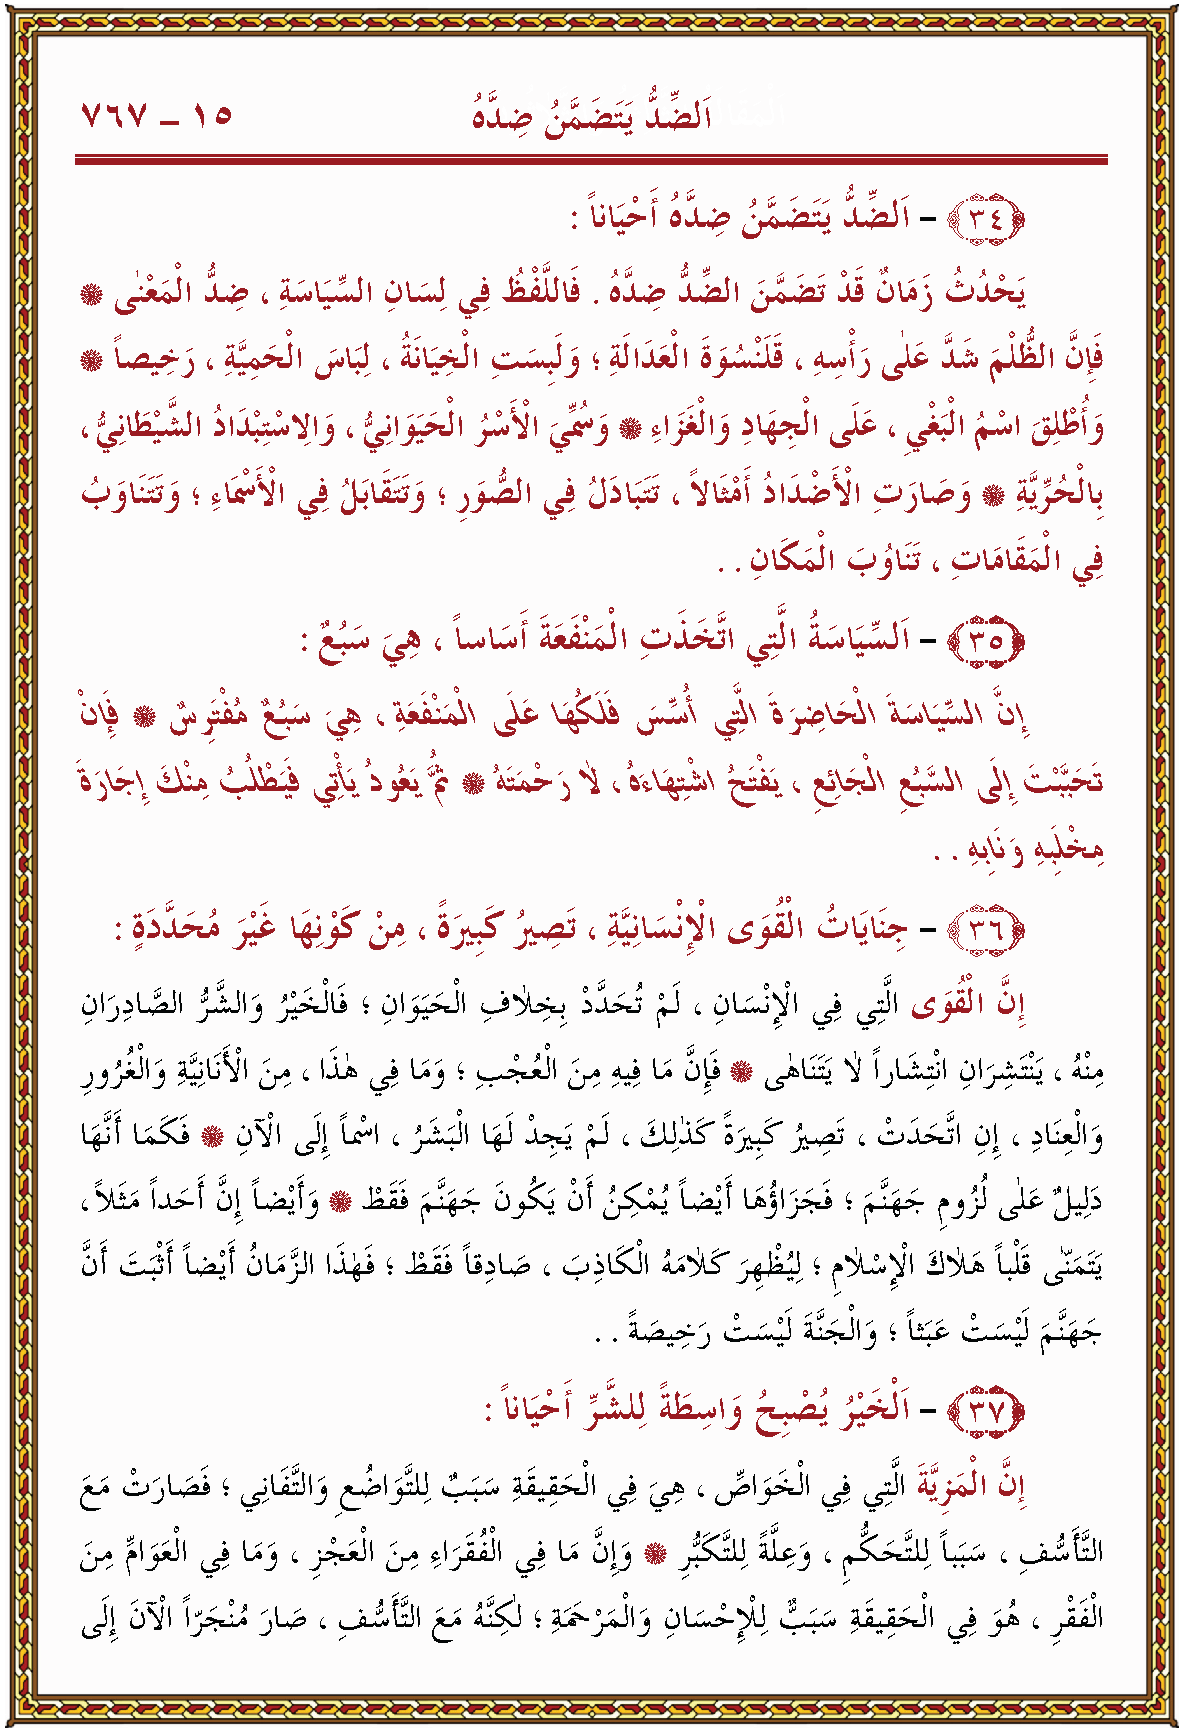 اَلضِّدُّ يَتَضَمَّنُ ضِدَّهُ ١٥ – ٧٦٧
﴿٣٤﴾ – اَلضِّدُّ يَتَضَمَّنُ ضِدَّهُ أَحْيَاناً :
يَحْدُثُ زَمَانٌ قَدْ تَضَمَّنَ الضِّدُّ ضِدَّهُ . فَاللَّفْظُ فِي لِسَانِ السِّيَاسَةِ ، ضِدُّ الْمَعْنٰى ۞
فَإِنَّ الظُّلْمَ شَدَّ عَلٰى رَأْسِهِ ، قَلَنْسُوَةَ الْعَدَالَةِ ؛ وَلَبِسَتِ الْخِيَانَةُ ، لِبَاسَ الْحَمِيَّةِ ، رَخِيصاً ۞
وَأُطْلِقَ اسْمُ الْبَغْيِ ، عَلَى الْجِهَادِ وَالْغَزَاءِ ۞ وَسُمِّيَ الْأَسْرُ الْحَيَوَانِيُّ ، وَاِلاسْتِبْدَادُ الشَّيْطَانِيُّ ،
بِالْحُرِّيَّةِ ۞ وَصَارَتِ الْأَضْدَادُ أَمْثَالاً ، تَتَبَادَلُ فِي الصُّوَرِ ؛ وَتَتَقَابَلُ فِي الْأَسْمَاءِ ؛ وَتَتَنَاوَبُ
فِي الْمَقَامَاتِ ، تَنَاوُبَ الْمَكَانِ . .
﴿٣٥﴾ – اَلسِّيَاسَةُ الَّتِي اتَّخَذَتِ الْمَنْفَعَةَ أَسَاساً ، هِيَ سَبُعٌ :
إِنَّ السِّيَاسَةَ الْحَاضِرَةَ الَّتِي أُسِّسَ فَلَكُهَا عَلَى الْمَنْفَعَةِ ، هِيَ سَبُعٌ مُفْتَرِسٌ ۞ فَإِنْ
تَحَبَّبْتَ إِلَى السَّبُعِ الْجَائِعِ ، يَفْتَحُ اشْتِهَاءَهُ ، لاَ رَحْمَتَهُ ۞ ثُمَّ يَعُودُ يَأْتِي فَيَطْلُبُ مِنْكَ إِجَارَةَ
مِخْلَبِهِ وَنَابِهِ . .
﴿٣٦﴾ – جِنَايَاتُ الْقُوَى الْإِنْسَانِيَّةِ ، تَصِيرُ كَبِيرَةً ، مِنْ كَوْنِهَا غَيْرَ مُحَدَّدَةٍ :
إِنَّ الْقُوَى الَّتِي فِي الْإِنْسَانِ ، لَمْ تُحَدَّدْ بِخِلاَفِ الْحَيَوَانِ ؛ فَالْخَيْرُ وَالشَّرُّ الصَّادِرَانِ
مِنْهُ ، يَنْتَشِرَانِ انْتِشَاراً لاَ يَتَنَاهٰى ۞ فَإِنَّ مَا فِيهِ مِنَ الْعُجْبِ ؛ وَمَا فِي هٰذَا ، مِنَ الْأَنَانِيَّةِ وَالْغُرُورِ
وَالْعِنَادِ ، إِنِ اتَّحَدَتْ ، تَصِيرُ كَبِيرَةً كَذٰلِكَ ، لَمْ يَجِدْ لَهَا الْبَشَرُ ، اسْماً إِلَى الْآنِ ۞ فَكَمَا أَنَّهَا
دَلِيلٌ عَلٰى لُزُومِ جَهَنَّمَ ؛ فَجَزَاؤُهَا أَيْضاً يُمْكِنُ أَنْ يَكُونَ جَهَنَّمَ فَقَطْ ۞ وَأَيْضاً إِنَّ أَحَداً مَثَلاً ،
يَتَمَنّٰى قَلْباً هَلاَكَ الْإِسْلاَمِ ؛ لِيُظْهِرَ كَلاَمُهُ الْكَاذِبَ ، صَادِقاً فَقَطْ ؛ فَهٰذَا الزَّمَانُ أَيْضاً أَثْبَتَ أَنَّ
جَهَنَّمَ لَيْسَتْ عَبَثاً ؛ وَالْجَنَّةَ لَيْسَتْ رَخِيصَةً . .
﴿٣٧﴾ – اَلْخَيْرُ يُصْبِحُ وَاسِطَةً لِلشَّرِّ أَحْيَاناً :
إِنَّ الْمَزِيَّةَ الَّتِي فِي الْخَوَاصِّ ، هِيَ فِي الْحَقِيقَةِ سَبَبٌ لِلتَّوَاضُعِ وَالتَّفَانِي ؛ فَصَارَتْ مَعَ
التَّأَسُّفِ ، سَبَباً لِلتَّحَكُّمِ ، وَعِلَّةً لِلتَّكَبُّرِ ۞ وَإِنَّ مَا فِي الْفُقَرَاءِ مِنَ الْعَجْزِ ، وَمَا فِي الْعَوَامِّ مِنَ
الْفَقْرِ ، هُوَ فِي الْحَقِيقَةِ سَبَبٌ لِلْإِحْسَانِ وَالْمَرْحَمَةِ ؛ لكِنَّهُ مَعَ التَّأَسُّفِ ، صَارَ مُنْجَرّاً الْآنَ إِلَى